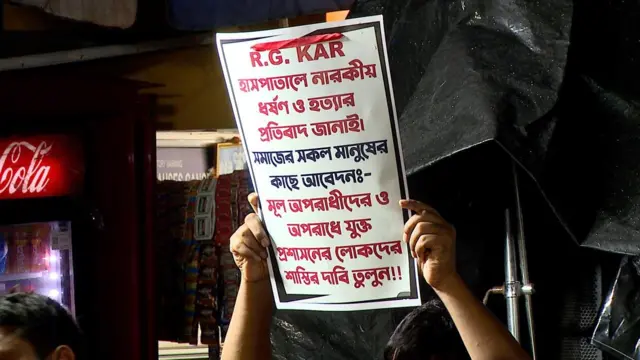 R.G. KAR
হাসপাতালে নারকীয়
ধর্ষণ ও হত্যার
প্রতিবাদ জানাই।
সমাজের সকল মানুষের
কাছে আবেদনঃ-
মূল অপরাধীদের ও
অপরাধে যুক্ত
প্রশাসনের লোকদের
শাস্তির দাবি তুলুন!!
Coca-Cola